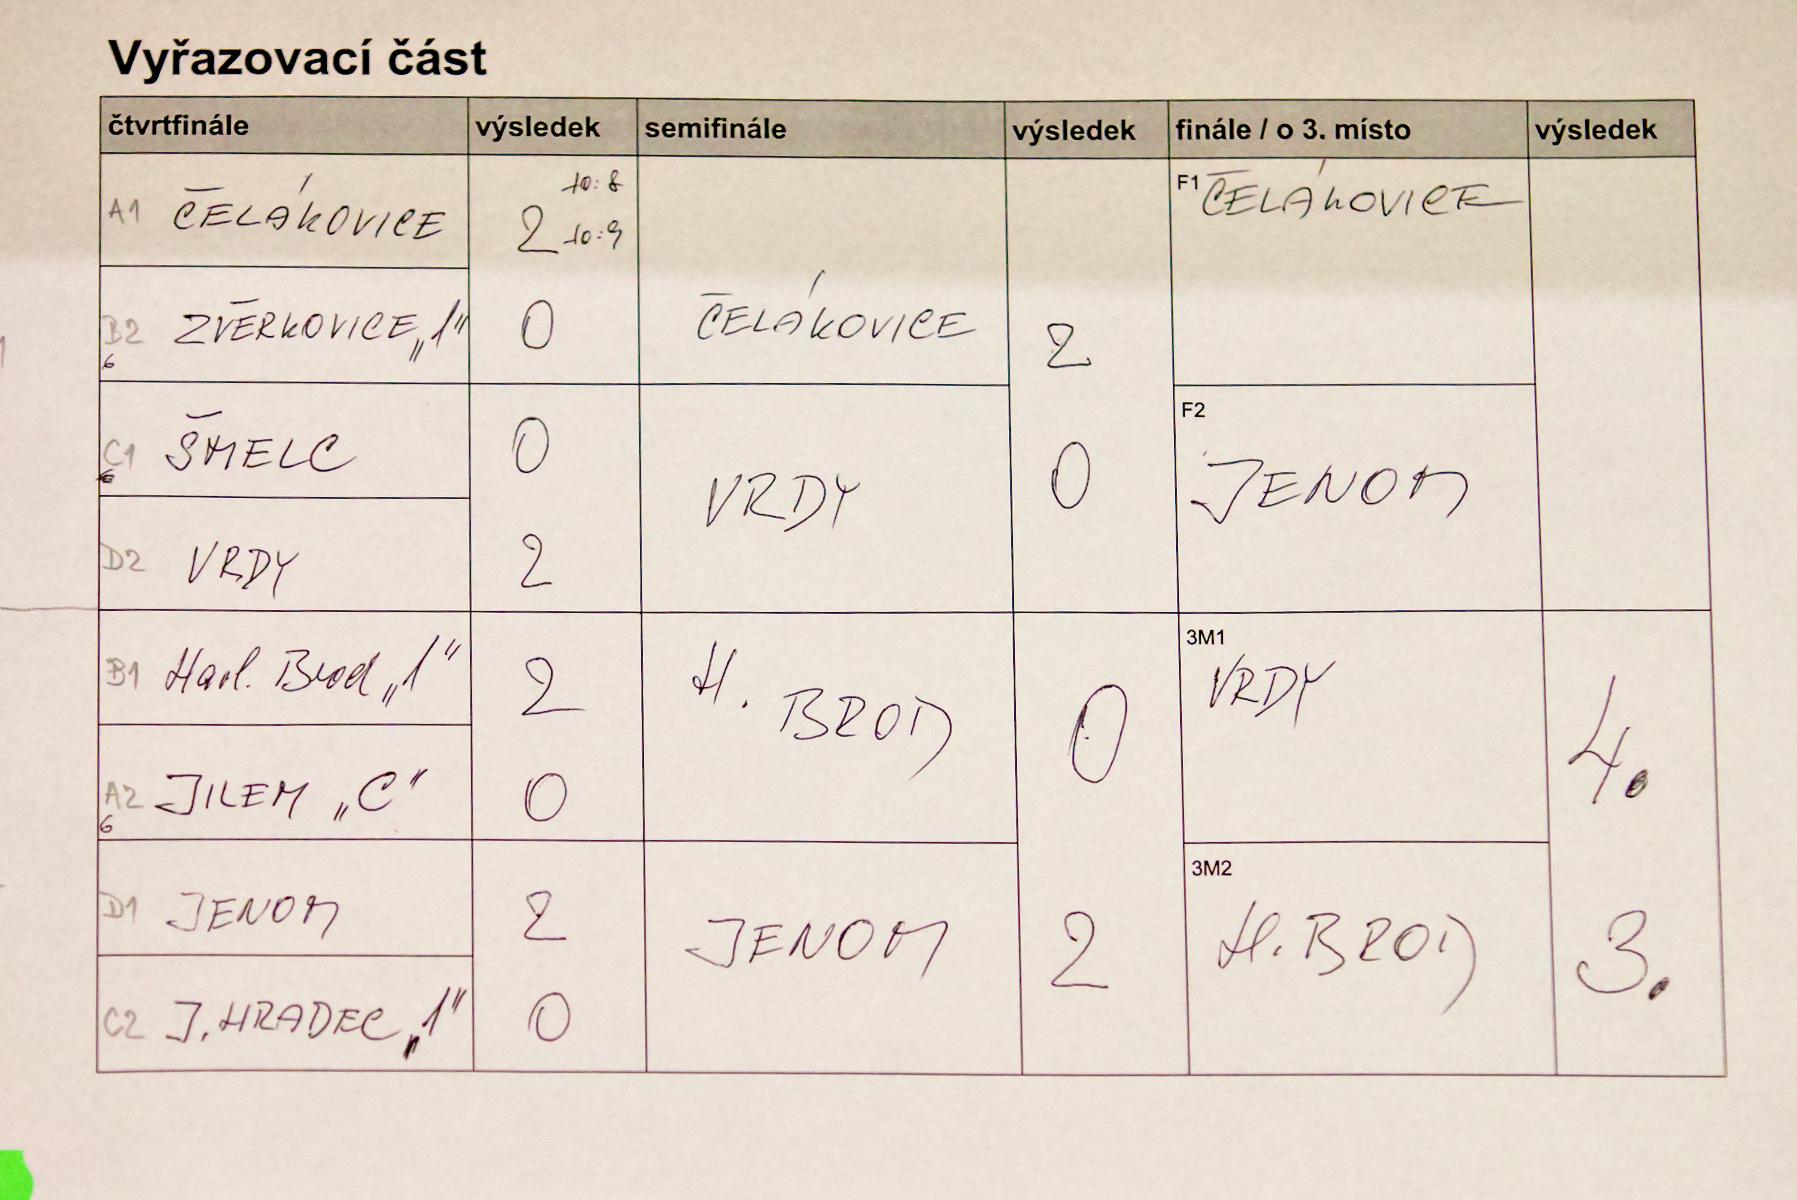 Vyřazovací část
čtvrtfinále výsledek semifinále výsledek finále / o 3. místo výsledek
A1 ČELÁKOVICE 2 10:8 10:9
B2 6 ZVĚRKOVICE „1“ 0
ČELÁKOVICE 2
F1 ČELÁKOVICE
C1 ŠMELC 0
D2 VRDY 2
VRDY 0
F2 JENOM
B1 Havl. Brod „1“ 2
A2 6 JILEM „C“ 0
H. BROD 0
3M1 VRDY 4.
D1 JENOM 2
C2 J. HRADEC „1“ 0
JENOM 2
3M2 H. BROD 3.